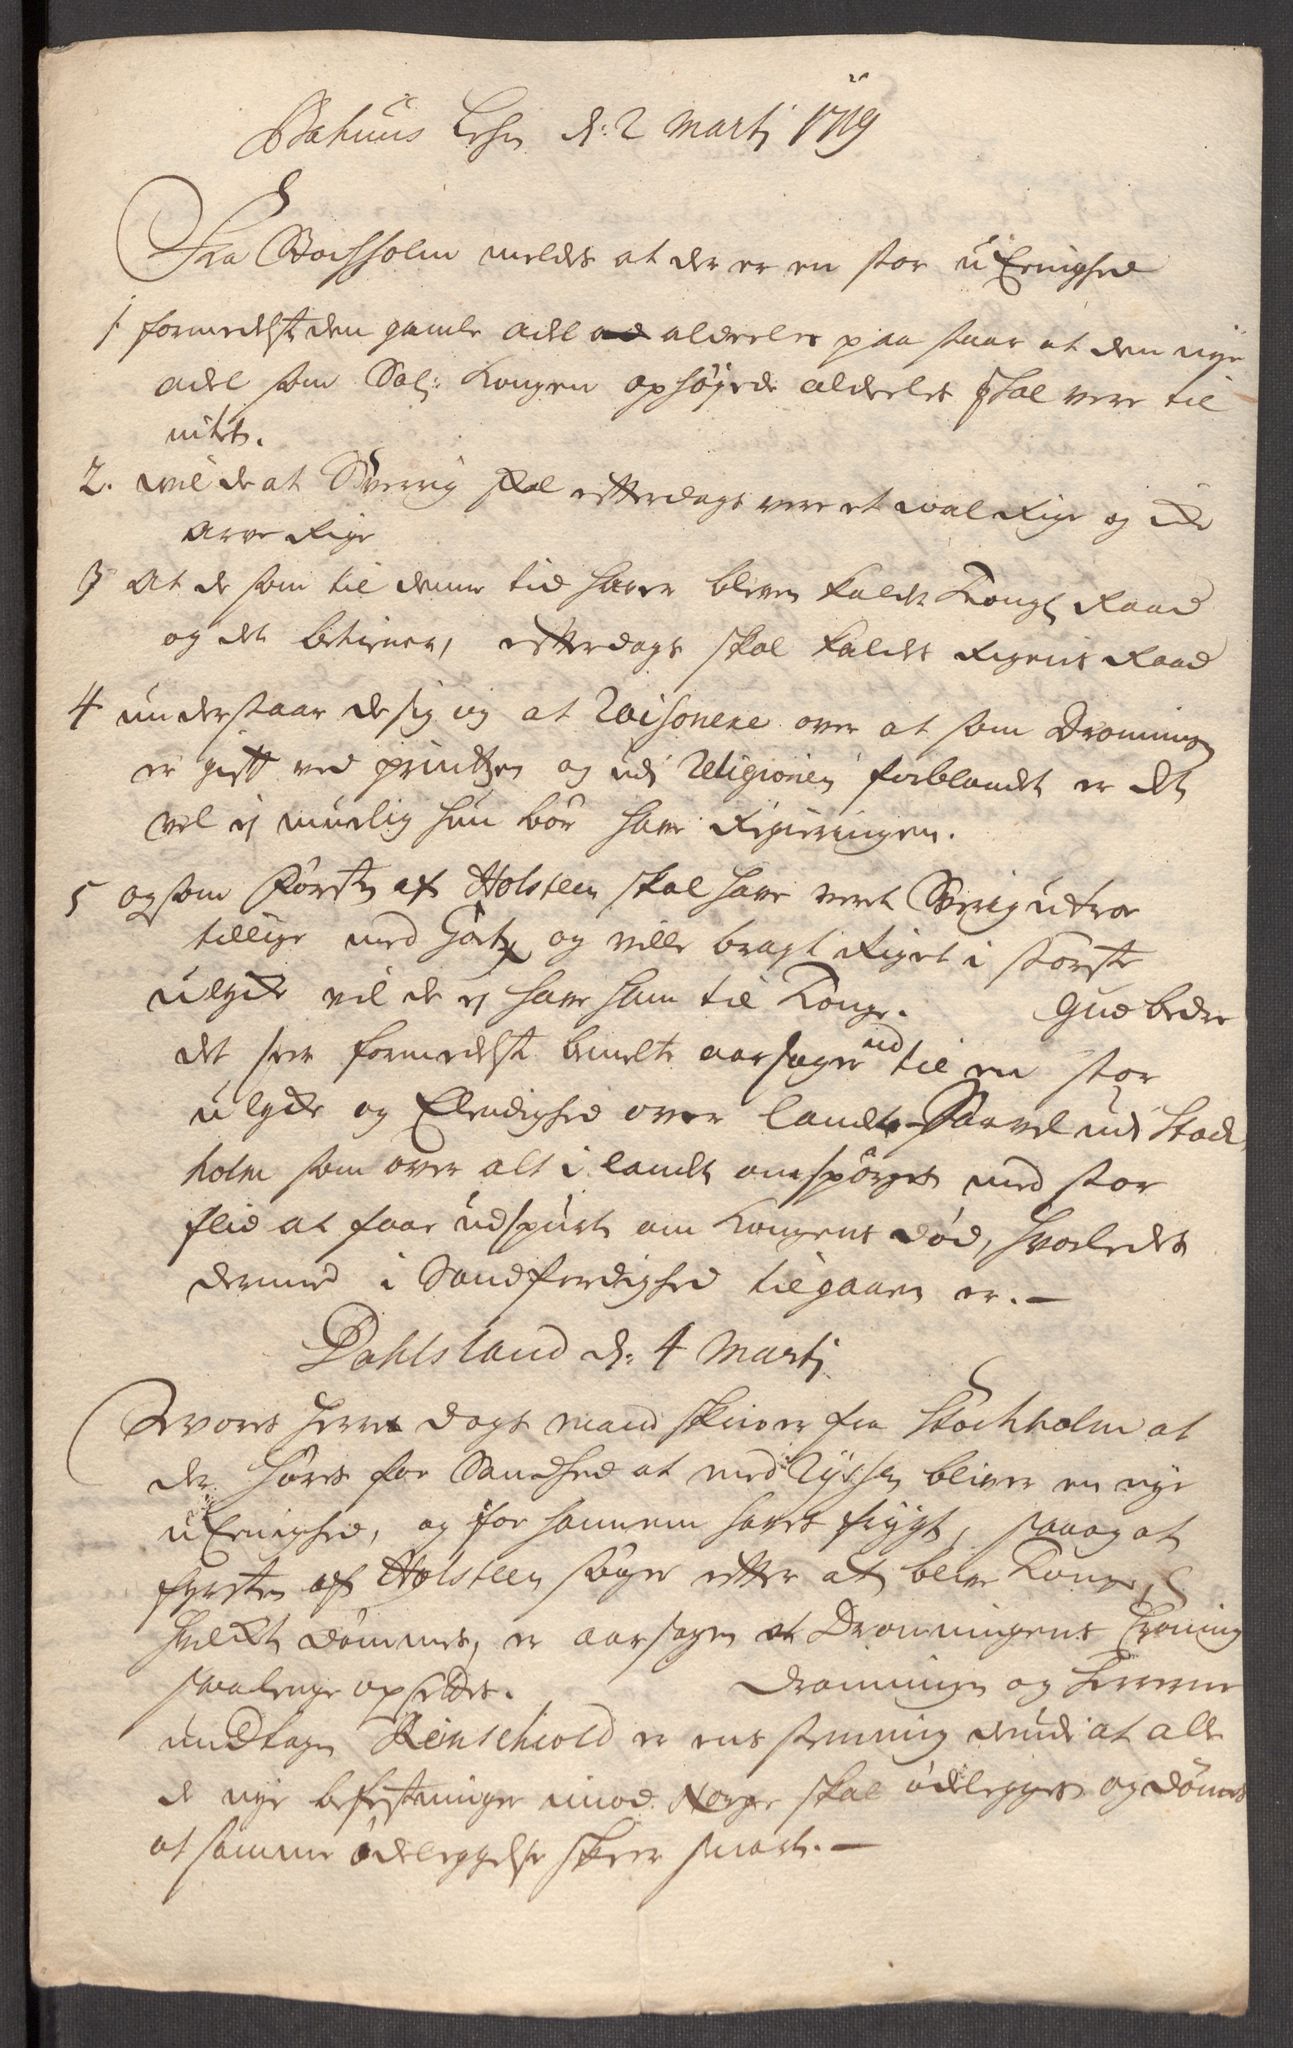 Bahuus Lehn d: 2 Martj 1719
Fra Stochholm meldes at der er en stor uEenighed
1. formedelst den gamle adel alderles paa staar at den nye
adel som Sal: Kongen ophøyede alderles skal vere til
intet.
2. vil de at Sverrig skal efterdags vere et wal Rige og icke
arve Rige
3 At de som til denne tid haver bleven kaldt Kongl Raad
og det betiener, efterdags skal kaldes Rigens Raad
4 understaar de sig og at Raisonere over at som Dronningen
er gift ved printzen og udi Religionen forblandet er det
vel ej muelig hun bør have Regieringen.
5 og som Førsten af Holsteen skal have veret Sverig utroe
tillige med Gørtz og ville bragt Riget i største
ulycke vil de ej have ham til Konge. Gud bedre
det seer formedelst bemelte aarsager ud til en stor
ulycke og Elendighed over landet Saavel udi Stock
holm som over alt i landet omspørges med stor
flid at faae udspurt om Kongens død, hvorledes
dermed i Sandferdighed tilgaaen er. —
Dahlsland d: 4 Martj
Vores Herre dags mand skriver fra Stockholm at
der høres for Sandhed at med Ryssen bliver en nye
uEenighed, og for hannem haves frygt, saa og at
fyrsten af Holsteen søger efter at blive Konge,
hvilket dømmes, er aarsagen at Dronningens Croning
saa lenge opsettes. Dronningen og Herrerne
undtagen Reinschiold er eens stemmig derudi at alle
de nye befestninger imod Norge skal ødelegges og dømes
at samme ødeleggelse skeer snart. —